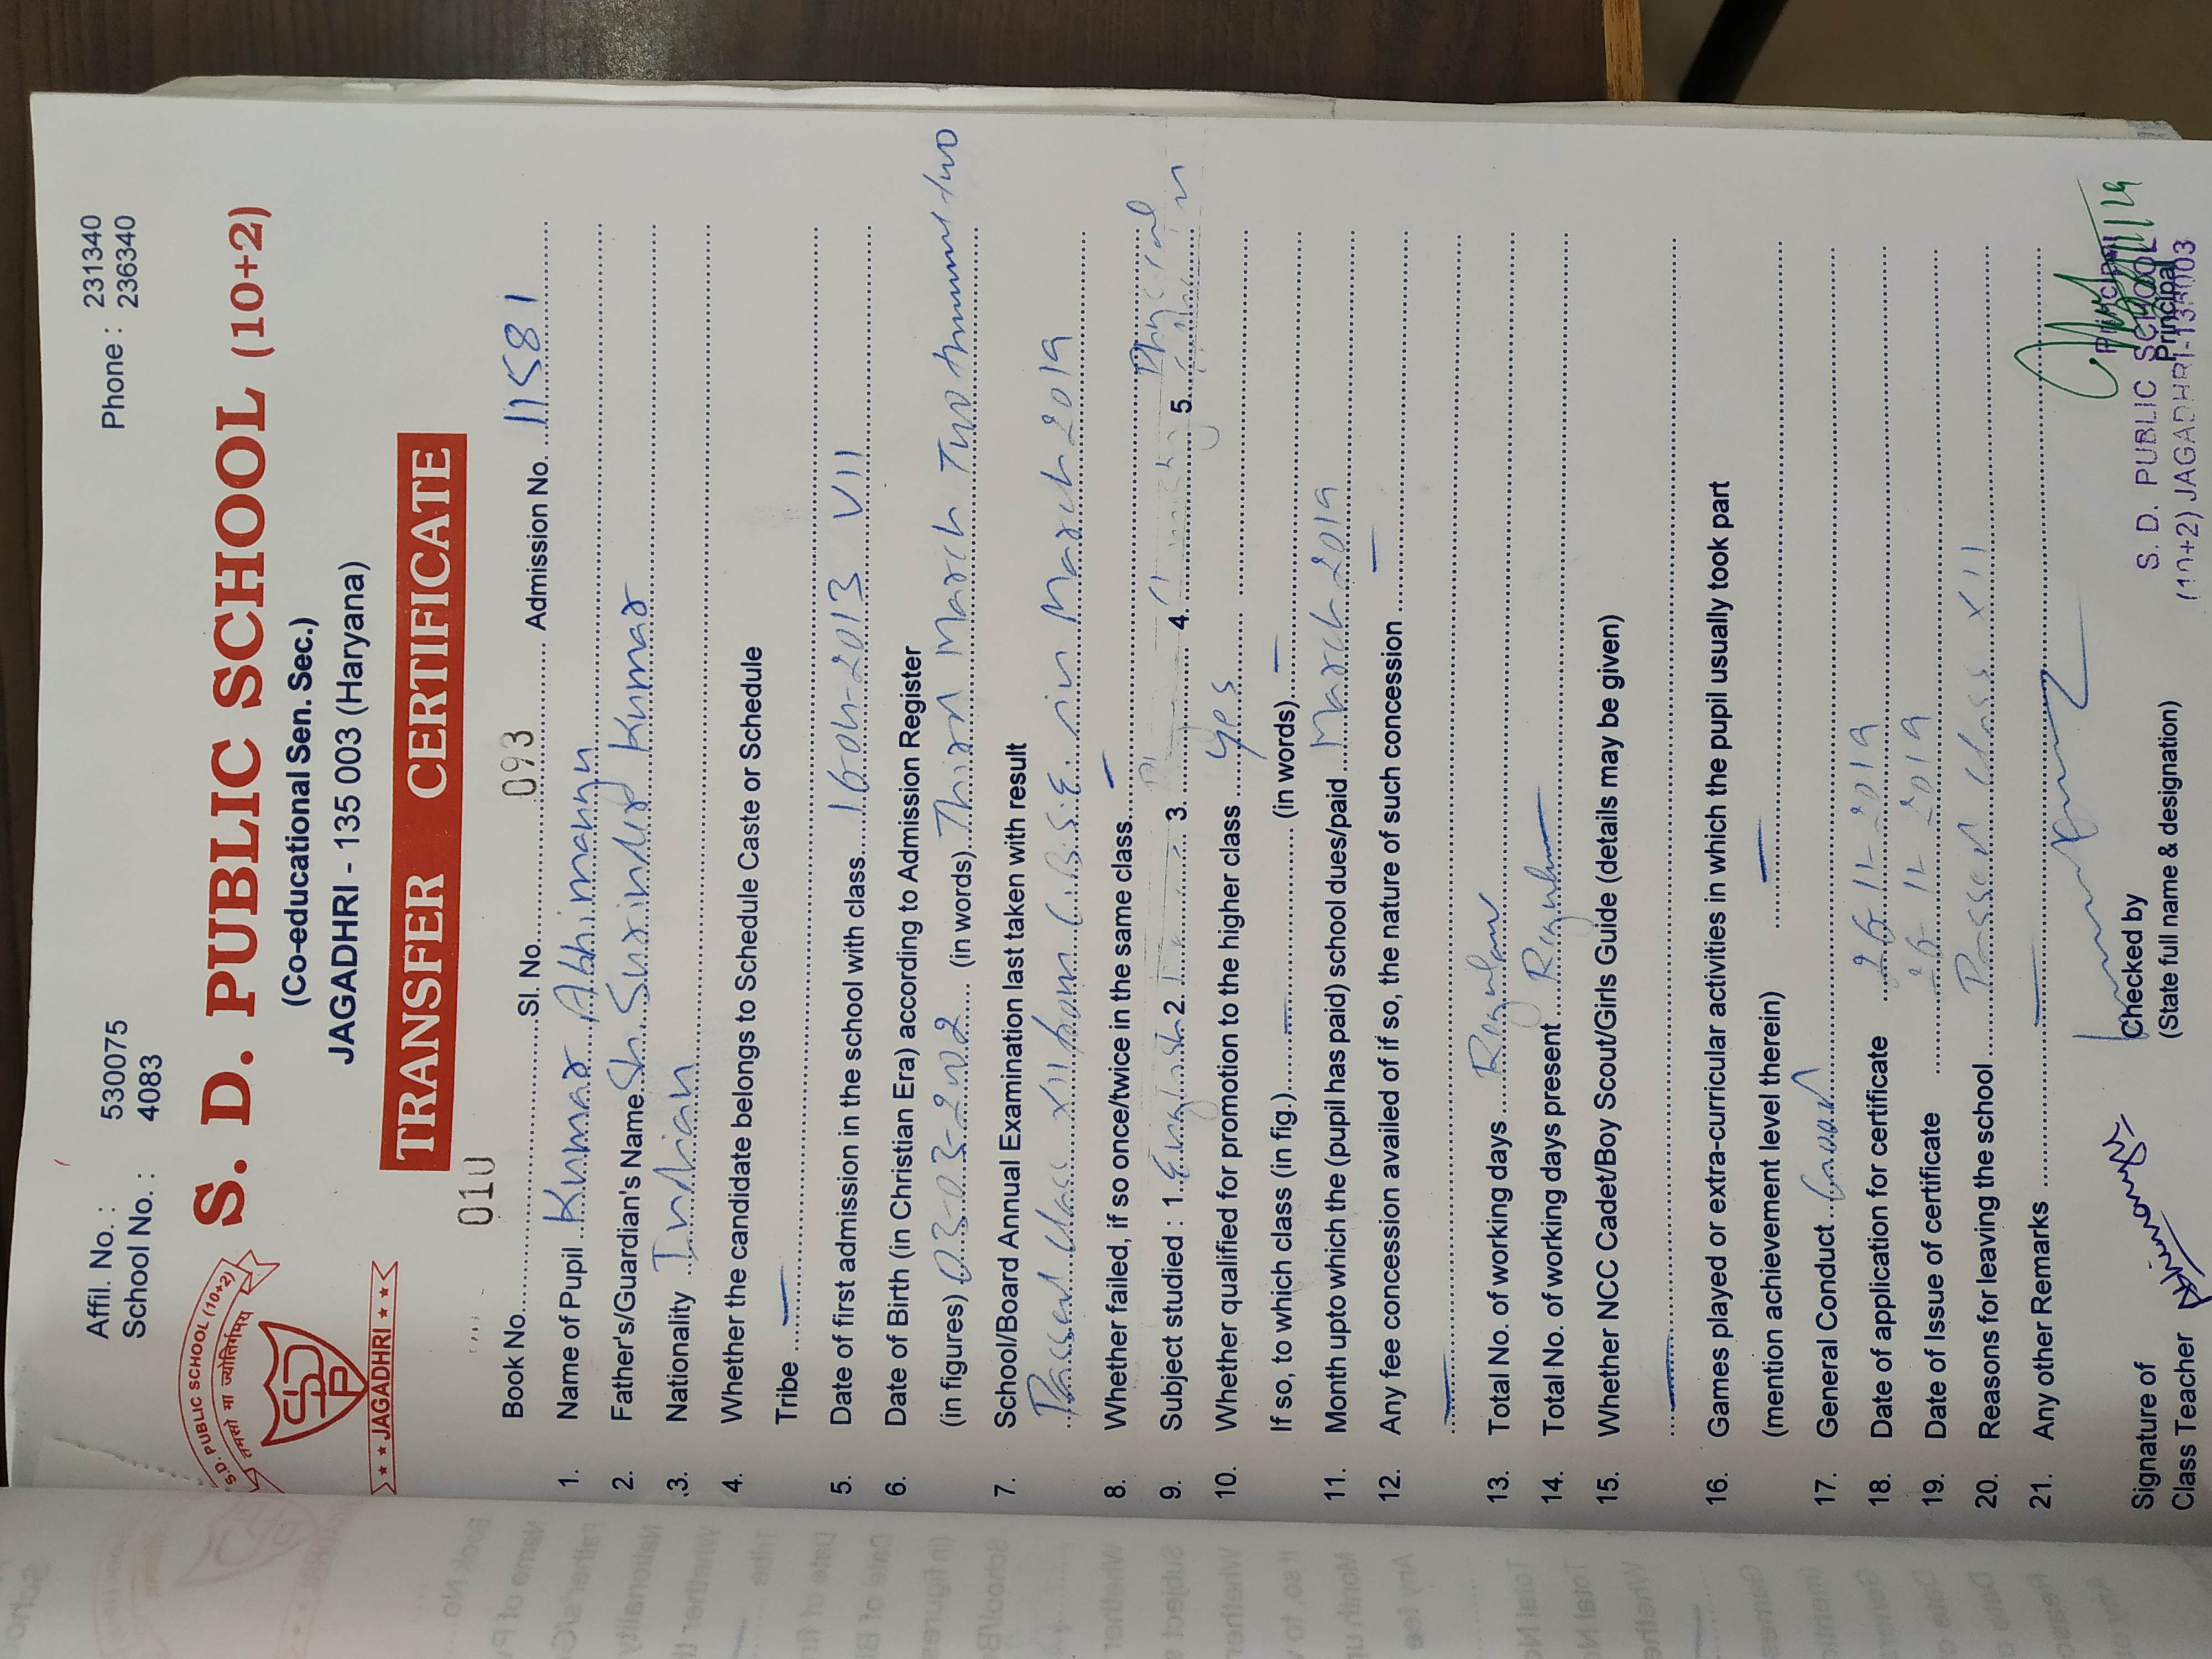 Affil. No. : 530075
School No. : 4083
Phone : 231340
236340
S.D. PUBLIC SCHOOL (10+2)
तमसो मा ज्योतिर्गमय
SDP
★ ★ JAGADHRI ★ ★
S. D. PUBLIC SCHOOL (10+2)
(Co-educational Sen. Sec.)
JAGADHRI - 135 003 (Haryana)
TRANSFER CERTIFICATE
010
Book No. Sl. No. 093 Admission No. 11581
1. Name of Pupil Kumar Abhimanyu
2. Father's/Guardian's Name Sh. Surinder Kumar
3. Nationality Indian
4. Whether the candidate belongs to Schedule Caste or Schedule
Tribe —
5. Date of first admission in the school with class VII
6. Date of Birth (in Christian Era) according to Admission Register
(in figures) 03-03-2002 (in words) Third March Two thousand two
7. School/Board Annual Examination last taken with result
Passed Class XII from C.B.S.E. in March 2019
8. Whether failed, if so once/twice in the same class —
9. Subject studied : 1. English 2. 3. 4. 5. Physical
10. Whether qualified for promotion to the higher class Yes
If so, to which class (in fig.) — (in words) —
11. Month upto which the (pupil has paid) school dues/paid March 2019
12. Any fee concession availed of if so, the nature of such concession —
—
13. Total No. of working days Regular
14. Total No. of working days present Regular
15. Whether NCC Cadet/Boy Scout/Girls Guide (details may be given)
—
16. Games played or extra-curricular activities in which the pupil usually took part
(mention achievement level therein) —
17. General Conduct Good
18. Date of application for certificate 26-11-2019
19. Date of Issue of certificate 26-11-2019
20. Reasons for leaving the school Passed Class XII
21. Any other Remarks —
Signature of
Class Teacher
Checked by
(State full name & designation)
Principal
PRINCIPAL
S. D. PUBLIC SCHOOL
(10+2) JAGADHRI-135003